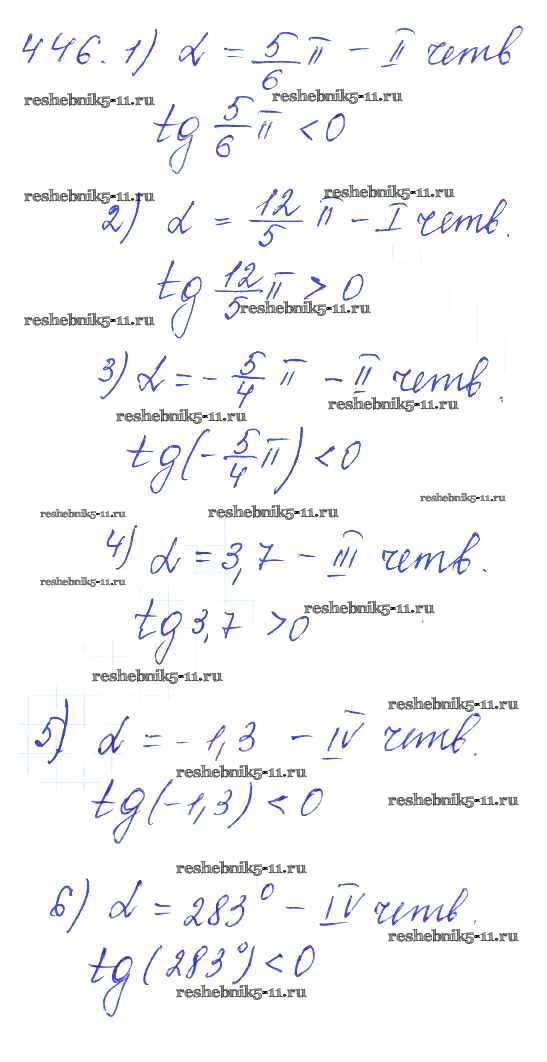 446. 1) α = 5/6 π - II четв
reshebnik5-11.ru reshebnik5-11.ru
tg 5/6 π < 0
reshebnik5-11.ru reshebnik5-11.ru
2) α = 12/5 π - I четв.
tg 12/5 π > 0
reshebnik5-11.ru reshebnik5-11.ru
3) α = - 5/4 π - II четв.
reshebnik5-11.ru reshebnik5-11.ru
tg(- 5/4 π) < 0
reshebnik5-11.ru
reshebnik5-11.ru reshebnik5-11.ru
4) α = 3,7 - III четв.
reshebnik5-11.ru
tg 3,7 > 0
reshebnik5-11.ru
reshebnik5-11.ru
reshebnik5-11.ru
5) α = - 1,3 - IV четв.
reshebnik5-11.ru
tg(-1,3) < 0
reshebnik5-11.ru
reshebnik5-11.ru
6) α = 283° - IV четв.
reshebnik5-11.ru
tg(283°) < 0
reshebnik5-11.ru